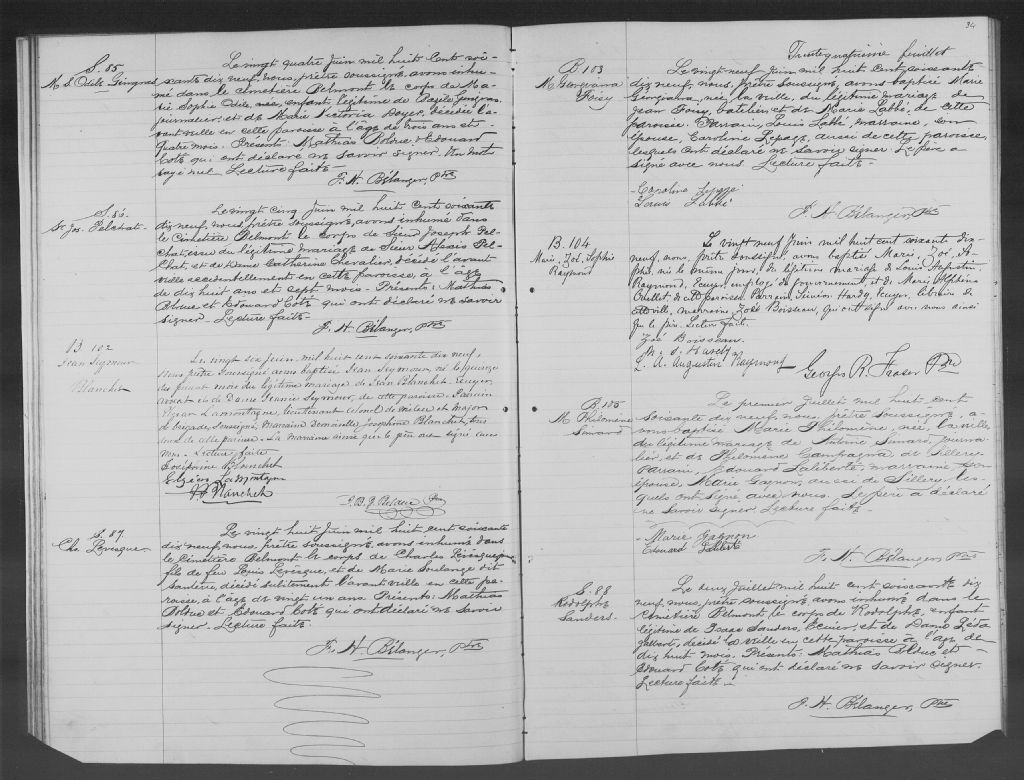 S. 85
M. S. Odile Gingras
Le vingt quatre Juin mil huit cent soi-
xante dix neuf, nous, prêtre soussigné, avons inhu-
mé dans le cimetière Belmont le corps de Ma-
rie Sophie Odile, née, enfant légitime de Gingras,
journalier, et de Marie Victoria Boyer, décédée l'a-
vant veille en cette paroisse à l'âge de trois ans et
quatre mois. Présents Mathias Bolduc et Edouard
Coté qui ont déclaré ne savoir signer. Un mot
rayé nul. Lecture faite
F. H. Bélanger, Ptre
S. 86
Sr Jos. Pelchat
Le vingt cinq Juin mil huit cent soixante
dix neuf, nous, prêtre soussigné, avons inhumé dans
le Cimetière Belmont le corps de Sieur Joseph Pel-
chat, issu du légitime mariage de Sieur Alexis Pel-
chat, et de Dame Catherine Chevalier, décédé l'avant
veille accidentellement en cette paroisse, à l'âge
de dix huit ans et sept mois. Présents: Mathias
Bolduc et Edouard Coté qui ont déclaré ne savoir
signer. Lecture faite.
F. H. Bélanger, Ptre
B 102
Jean Seymour
Blanchet
Le vingt six Juin, mil huit cent soixante dix neuf,
nous prêtre soussigné avons baptisé Jean Seymour, né le quinze
du présent mois du légitime mariage de Jean Blanchet, Ecuyer,
avocat et de Dame Jeannie Seymour, de cette paroisse. Parrain
Elzear Lamontagne, lieutenant colonel de milice et major
de brigade, soussigné, Marraine Demoiselle Josephine Blanchet, tous
deux de cette paroisse. La marraine ainsi que le père ont signé avec
nous. Lecture faite
Josephine Blanchet
Elzéar LaMontagne
J. Blanchet
S. 87
Chs Lévesque
Le vingt huit Juin mil huit cent soixante
dix neuf, nous, prêtre soussigné, avons inhumé dans
le Cimetière Belmont le corps de Charles Lévesque,
fils de feu Louis Lévesque, et de Marie Soulange dit
décédé subitement l'avant veille en cette pa-
roisse, à l'âge de vingt un ans. Présents: Mathias
Bolduc et Edouard Coté qui ont déclaré ne savoir
signer. Lecture faite
F. H. Bélanger, Ptre
34
Trente quatrième feuillet
B 103
M. Georgiana
Foisy
Le vingt-neuf Juin mil huit cent soixante
dix neuf, nous, prêtre soussigné, avons baptisé Marie
Georgiana, née la veille, du légitime mariage de
Jean Foisy, et de Marie Labbé, de cette
paroisse. Parrain, Louis Labbé, marraine, son
épouse, Caroline Lepage, aussi de cette paroisse,
lesquels ont déclaré ne savoir signer. Le père a
signé avec nous. Lecture faite
Caroline
Louis Labbé
F. H. Bélanger, Ptre
B. 104
Marie, Zoé, Sophie
Raymond
Le vingt neuf Juin mil huit cent soixante dix-
neuf, nous, prêtre soussigné, avons baptisé Marie, Zoé, So-
phie, née le même jour, du légitime mariage de Louis Augustin
Raymond, Ecuyer, employé du gouvernement et de Marie Alphonsine
Ouellet, de cette paroisse. Parrain, Hardy, Ecuyer, libraire de
cette ville, marraine Zoé Boisseau, qui ont signé avec nous ainsi
que le père. Lecture faite.
Zoé Boisseau
Hardy
L. A. Augustin Raymond
Georges R. Fraser Ptre
B. 105
M. Philomène
Simard
Le premier Juillet mil huit cent
soixante dix neuf, nous, prêtre soussigné, a-
vons baptisé Marie Philomène, née, la veille
du légitime mariage de Antoine Simard, journa-
lier, et de Philomène Campagna de Sillery.
Parrain, Edouard Laliberté, marraine son
épouse, Marie Gagnon, aussi de Sillery, les-
quels ont signé avec nous. Le père a déclaré
ne savoir signer. Lecture faite.
Marie Gagnon
Edouard Laliberte
F. H. Bélanger, Ptre
S. 88
Rodolphe
Sanders.
Le deux Juillet mil huit cent soixante dix
neuf, nous, prêtre soussigné, avons inhumé dans le
Cimetière Belmont le corps de Rodolphe, enfant
légitime de Sanders, Ecuier, et de Dame
décédé la veille en cette paroisse à l'âge de
dix huit mois. Présents: Mathias Bolduc et
Edouard Coté qui ont déclaré ne savoir signer.
Lecture faite
F. H. Bélanger, Ptre